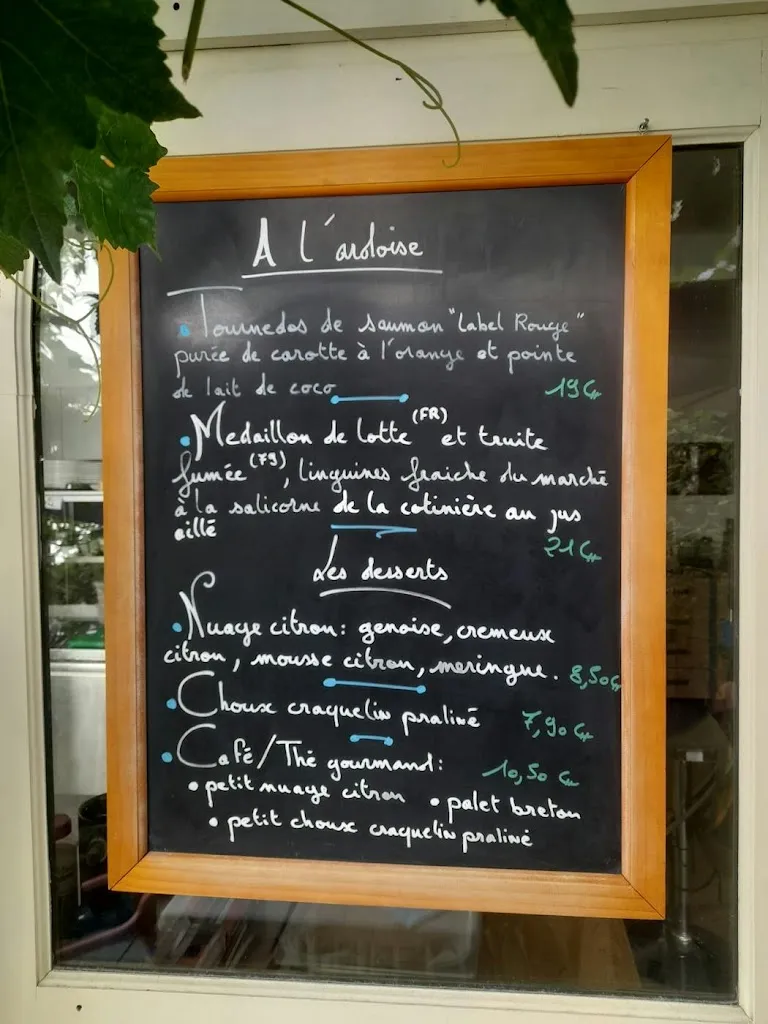 A l'ardoise
Tournedos de saumon "Label Rouge"
purée de carotte à l'orange et pointe
de lait de coco 19€
Medaillon de lotte (FR) et truite
fumée (79), linguines fraiche du marché
à la salicorne de la cotinière au jus
aillé
21€
Les desserts
Nuage citron: genoise, cremeux
citron, mousse citron, meringue. 8,50€
Choux craquelin praliné 7,90€
Café/Thé gourmand: 10,50€
• petit nuage citron • palet breton
• petit choux craquelin praliné